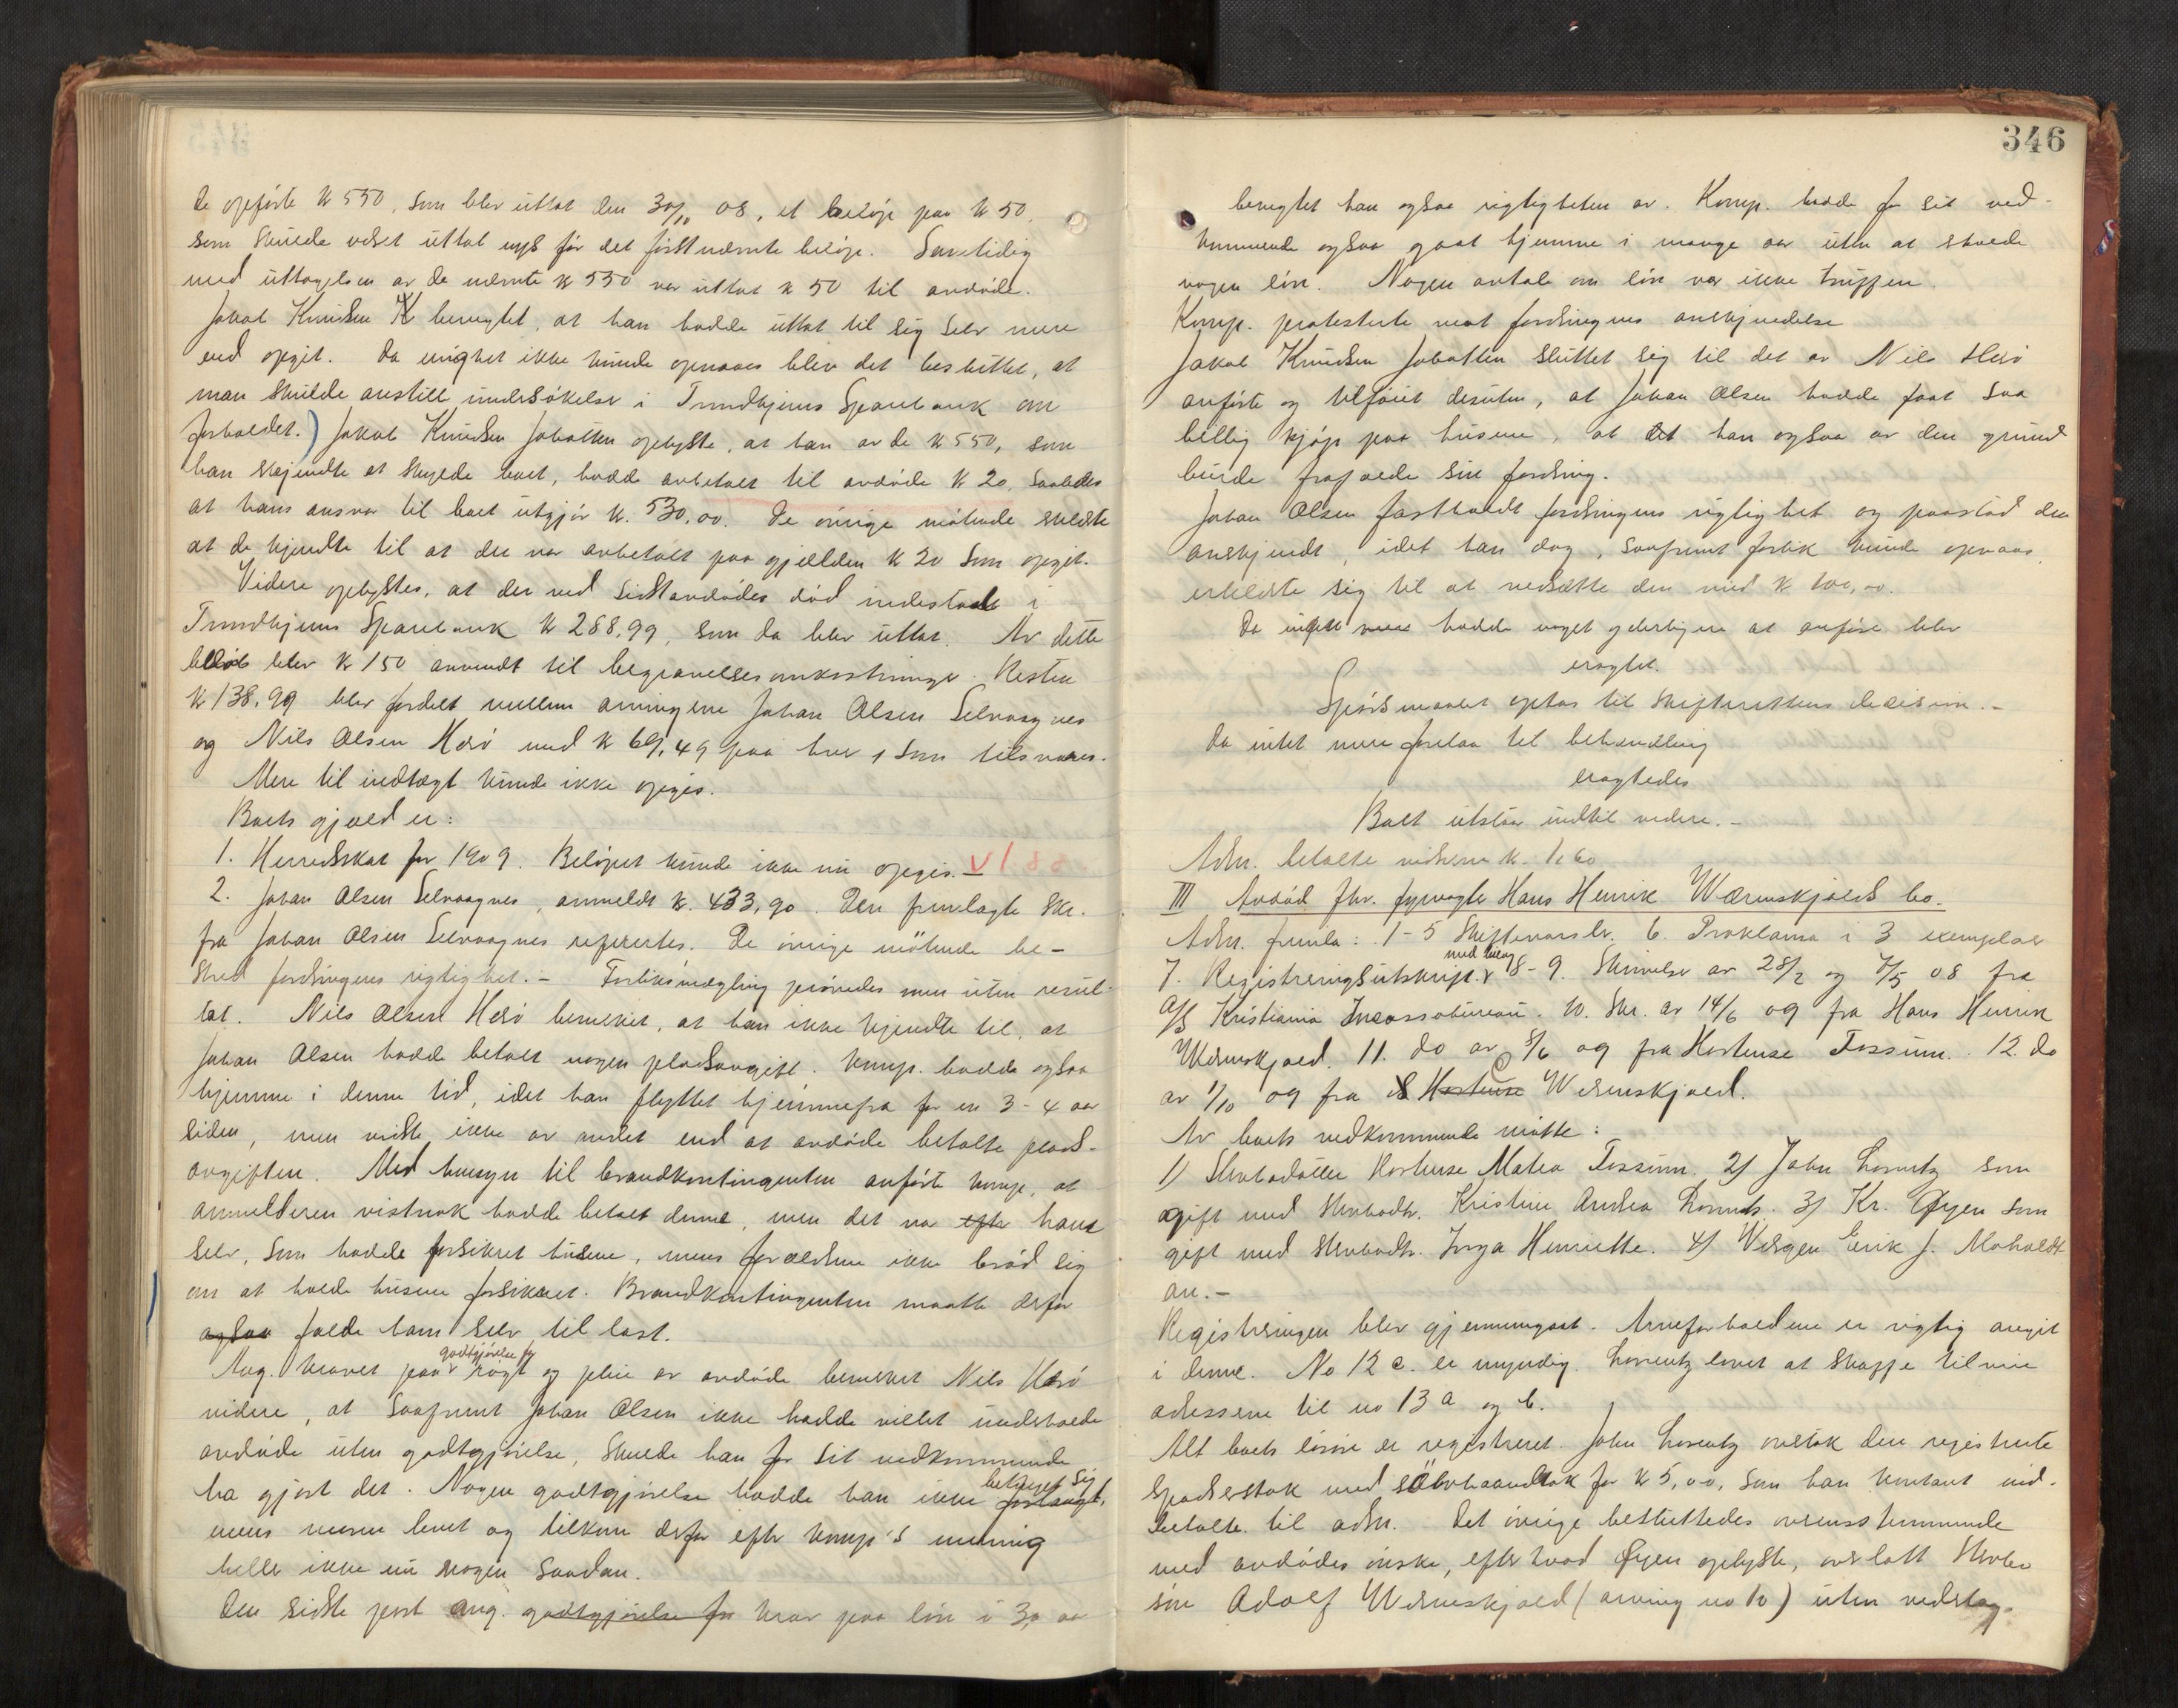 de opførte k 550, som blev uttat den 30/10 08, et beløp paa k 50,
som skulde være uttat før det førstnævnte beløp. Samtidig
med uttagelsen av de nævnte k 550 var uttat k 50 til avdøde.
Jakob Knudsen benegtet, at han hadde uttat til sig selv mere
end opgit. Da enighet ikke kunde opnaaes blev det besluttet, at
man skulde anstille undersøkelse i Trondhjems Sparebank om
forholdet.) Jakob Knudsen Jobotten oplyste, at han av de k 550, som
han erkjendte at skylde boet, hadde avbetalt til avdøde k 20, saaledes
at hans ansvar til boet utgjør k. 530,00. De øvrige møtende erklærte
at de kjendte til at der var avbetalt paa gjælden k 20 som opgit.
Videre oplystes, at der ved sidstavdødes død indestod i
Trondhjems Sparebank k 288,99, som da blev uttat. Av dette
beløb blev k 150 anvendt til begravelsesomkostninger. Resten
k 138,99 blev fordelt mellem arvingerne Johan Olsen Selvaagnes
og Nils Olsen Herø med k 69,49 paa hver, som tilsvares.
Mere til indtægt kunde ikke opgis.
Boets gjæld er:
1. Herredskat for 1909. Beløpet kunde ikke nu opgis. V
2. Johan Olsen Selvaagnes, anmeldt k. 433,90. Den fremlagte Skr.
fra Johan Olsen Selvaagnes refereertes. De øvrige møtende be-
stred fordringens rigtighet. - Forliksmægling prøvedes men uten resul-
tat. Nils Olsen Herø bemerket, at han ikke kjendte til, at
Johan Olsen hadde betalt nogen pladsavgift. Komp. hadde ogsaa
hjemme i denne tid, idet han flyttet hjemmefra for en 3-4 aar
siden, men vidste ikke av andet end at avdøde betalte plads-
avgiften. Med hensyn til brandkontingenten anførte komp. at
anmelderen vistnok hadde betalt denne, men det var efter hans
selv, som hadde forsikret husene, mens forældrene ikke brød sig
om at holde husene forsikret. Brandkontingenten maatte derfor
ogsaa falde ham selv til last.
Ang. kravet paa godtgjørelse for røgt og pleie av avdøde bemerket Nils Herø
videre, at saafremt Johan Olsen ikke hadde villet underholde
avdøde uten godtgjørelse, skulde han for sit vedkommende
ha gjort det. Nogen godtgjørelse hadde han ikke forlangt, betinget sig
mens moren levet og tilkom derfor efter komp's mening
heller ikke nu nogen saadan.
Den sidste post ang. godtgjørelse for krav paa løn i 30 aar
346
benegtet han ogsaa rigtigheten av. Komp. hadde for sit ved-
kommende ogsaa gaat hjemme i mange aar uten at skulde
nogen løn. Nogen avtale om løn var ikke truffen.
Komp. protesterte mot fordringens anerkjendelse
Jakob Knudsen Jobotten sluttet sig til det av Nils Herø
anførte og tilføiet desuten, at Johan Olsen hadde faat saa
billig kjøp paa husene, at det han ogsaa av den grund
burde frafalde sin fordring.
Johan Olsen fastholdt fordringens rigtighet og paastod den
anerkjendt, idet han dog, saafremt forlik kunde opnaaes,
erklærte sig til at nedsætte den med k 100,00.
Da ingen hadde noget yderligere at anføre blev
eragtet.
Spørsmaalet optas til skifterettens decision. -
Da intet mere forelaa til behandling
eragtedes
Boet utstaar indtil videre. -
Adm. betalte vidnerne k. 1,60
III Avdød fhv. fyrvogter Hans Henrik Wærnskjolds bo.
Adm. fremla: 1-5 Skiftevarsler. 6. Proklama i 3 exemplar
7. Registreringsutskrift med bilag 8-9. Skrivelse av 28/2 og 7/5 08 fra
A/S Kristiania Incassobureau. 10. Skr. av 14/6 og fra Hans Henrik
Wærnskjold. 11. do av 3/6 og fra Hortense Fossum. 12. do
av 1/10 og fra Hortense Wærnskjold.
Av boets vedkommende møtte:
1) Stervbodatter Hortense Matea Fossum. 2) John Lorentz som
gift med stervbodtr. Kristine Andrea Lorentz. 3) Kr. Øyen som
gift med stervbodtr. Inga Henriette. 4) Værgen Erik J. Moholdt
an. -
Registreringen blev gjennemgaat. Arveforholdene er rigtig angit
i denne. No 12 c. er umyndig. Lorentz lovet at skaffe tilveie
adressene til no 13 a og b.
Alt boets løsøre er registreret. John Lorentz overtok den registrerte
spaserstok med sølvhaandtak for k 5,00, som han kontant ind-
betalte til adm. Det øvrige besluttedes overensstemmende
med avdødes ønske, efter hvad Øyen oplyste, overlatt Stervbo
søn Adolf Wærnskjold (arving no 10) uten vederlag.